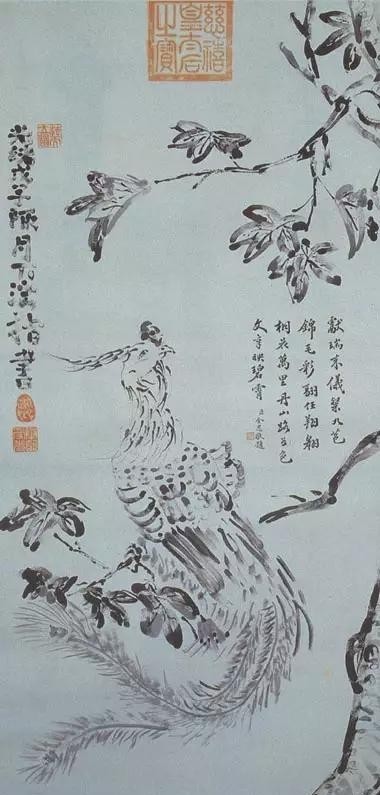 慈禧
皇太后
之寶
獻瑞來儀粲九苞
錦毛彩翮任翔翱
桐花萬里丹山路五色
文章映碧霄 臣敬題
光緒戊子陬月下澣指畫